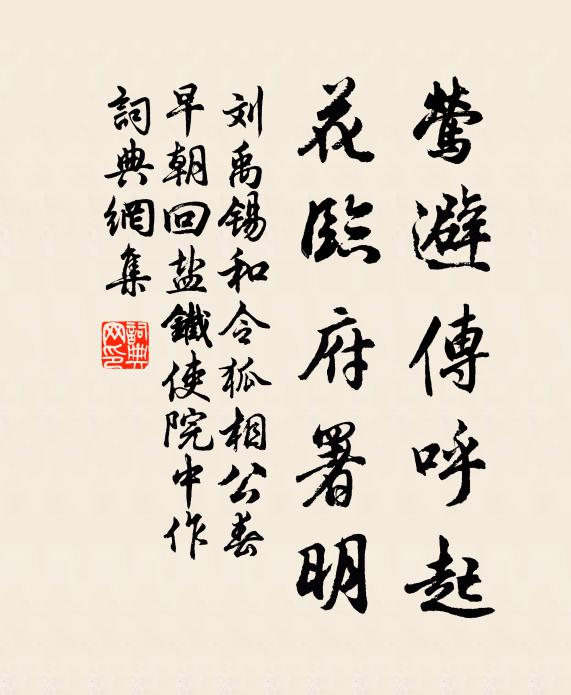 鶯避傳呼起
花臨府署明
刘禹锡和令狐相公春
早朝回盐鐵使院中作
詞典網集
詞典网印